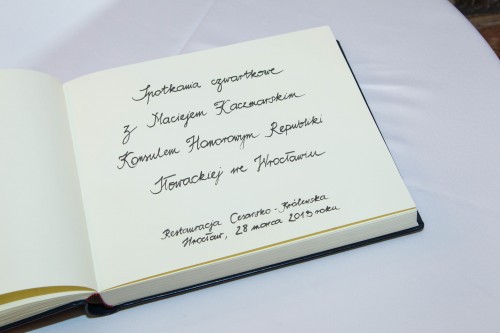 Spotkania czwartkowe
z Maciejem Kaczmarskim
Konsulem Honorowym Republiki
Słowackiej we Wrocławiu
Restauracja Cesarsko-Królewska
Wrocław, 28 marca 2013 roku